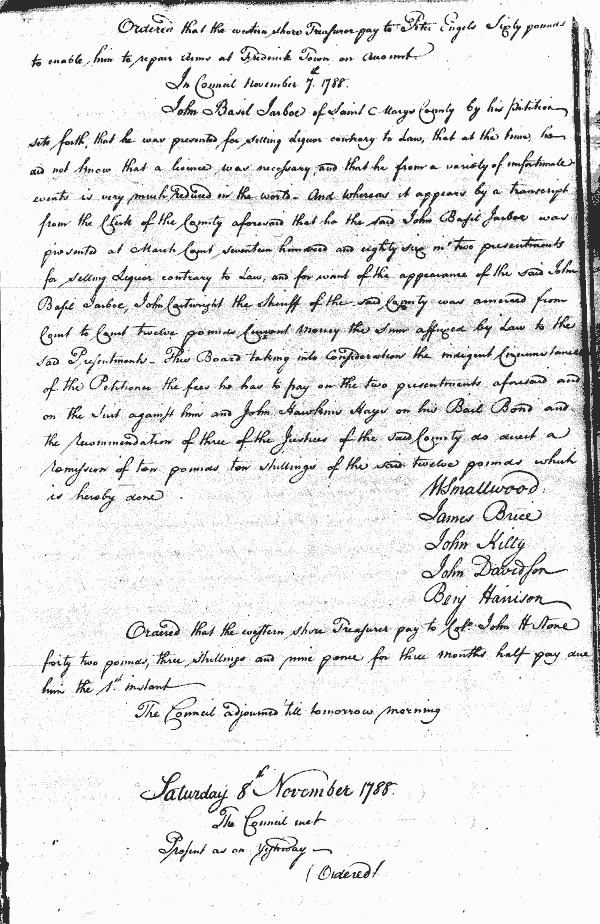 Ordered that the western shore Treasurer pay to Peter Engels Sixty pounds
to enable him to repair Arms at Frederick Town on Account.
In Council November 7th. 1788.
John Basil Jarboe of Saint Marys County by his Petition
sets forth, that he was presented for selling Liquor contrary to Law, that at the time, he
did not know that a licence was necessary and that he from a variety of unfortunate
events is very much reduced in the world - And whereas it appears by a transcript
from the Clerk of the County aforesaid that he the said John Basil Jarboe was
presented at March Court seventeen hundred and eighty six in two presentments
for selling Liquor contrary to Law, and for want of the appearance of the said John
Basil Jarboe, John Cartwright the Sheriff of the said County was amerced from
Court to Court twelve pounds Current money the sum affixed by Law to the
said Presentments - This Board taking into Consideration the indigent Circumstances
of the Petitioner the fees he has to pay on the two presentments aforesaid and
on the Suit against him and John Hawkins Hays on his Bail Bond and
the recommendation of three of the Justices of the said County do direct a
remission of ten pounds ten shillings of the said twelve pounds which
is hereby done
W Smallwood.
James Brice
John Kilty
John Davidson
Benj Harrison
Ordered that the western shore Treasurer pay to Colo. John H Stone
forty two pounds, three shillings and nine pence for three months half pay due
him the 1st instant
The Council adjourned till tomorrow morning
Saturday 8th November 1788.
The Council met
Present as on Yesterday
(Ordered)